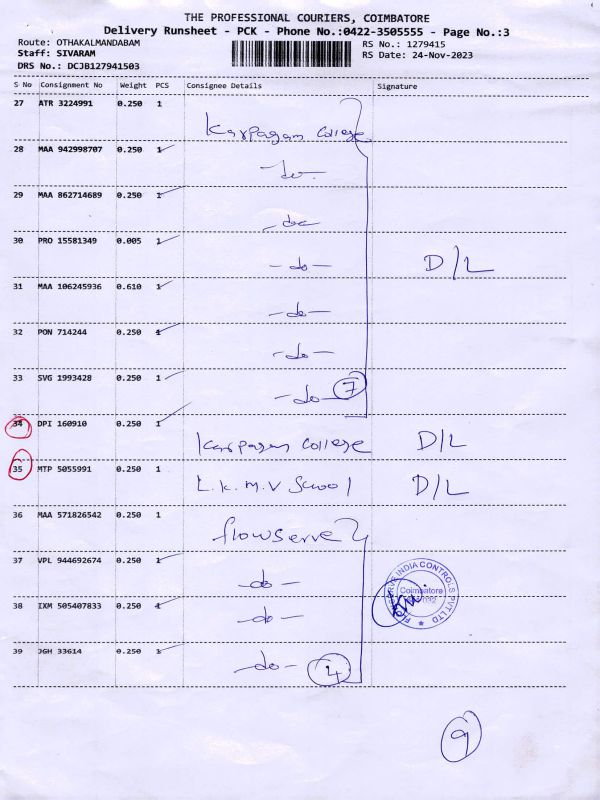 THE PROFESSIONAL COURIERS, COIMBATORE
Delivery Runsheet - PCK - Phone No.:0422-3505555 - Page No.:3
Route: OTHAKALMANDABAM
RS No.: 1279415
Staff: SIVARAM
RS Date: 24-Nov-2023
DRS No.: DCJB127941503
S No Consignment No Weight PCS Consignee Details Signature
27 ATR 3224991 0.250 1
Karpagam College
28 MAA 942998707 0.250 1
-do-
29 MAA 862714689 0.250 1
-do-
30 PRO 15581349 0.005 1
-do- D/L
31 MAA 106245936 0.610 1
-do-
32 PON 714244 0.250 1
-do-
33 SVG 1993428 0.250 1
-do- 7
34 DPI 160910 0.250 1
Karpagam College D/L
35 MTP 5055991 0.250 1
L.K.M.V School D/L
36 MAA 571826542 0.250 1
flowserve
37 VPL 944692674 0.250 1
-do-
INDIA CONTROLS PVT LTD
Coimbatore
38 IXM 505407833 0.250 1
-do-
39 JGH 33614 0.250 1
-do- 4
9